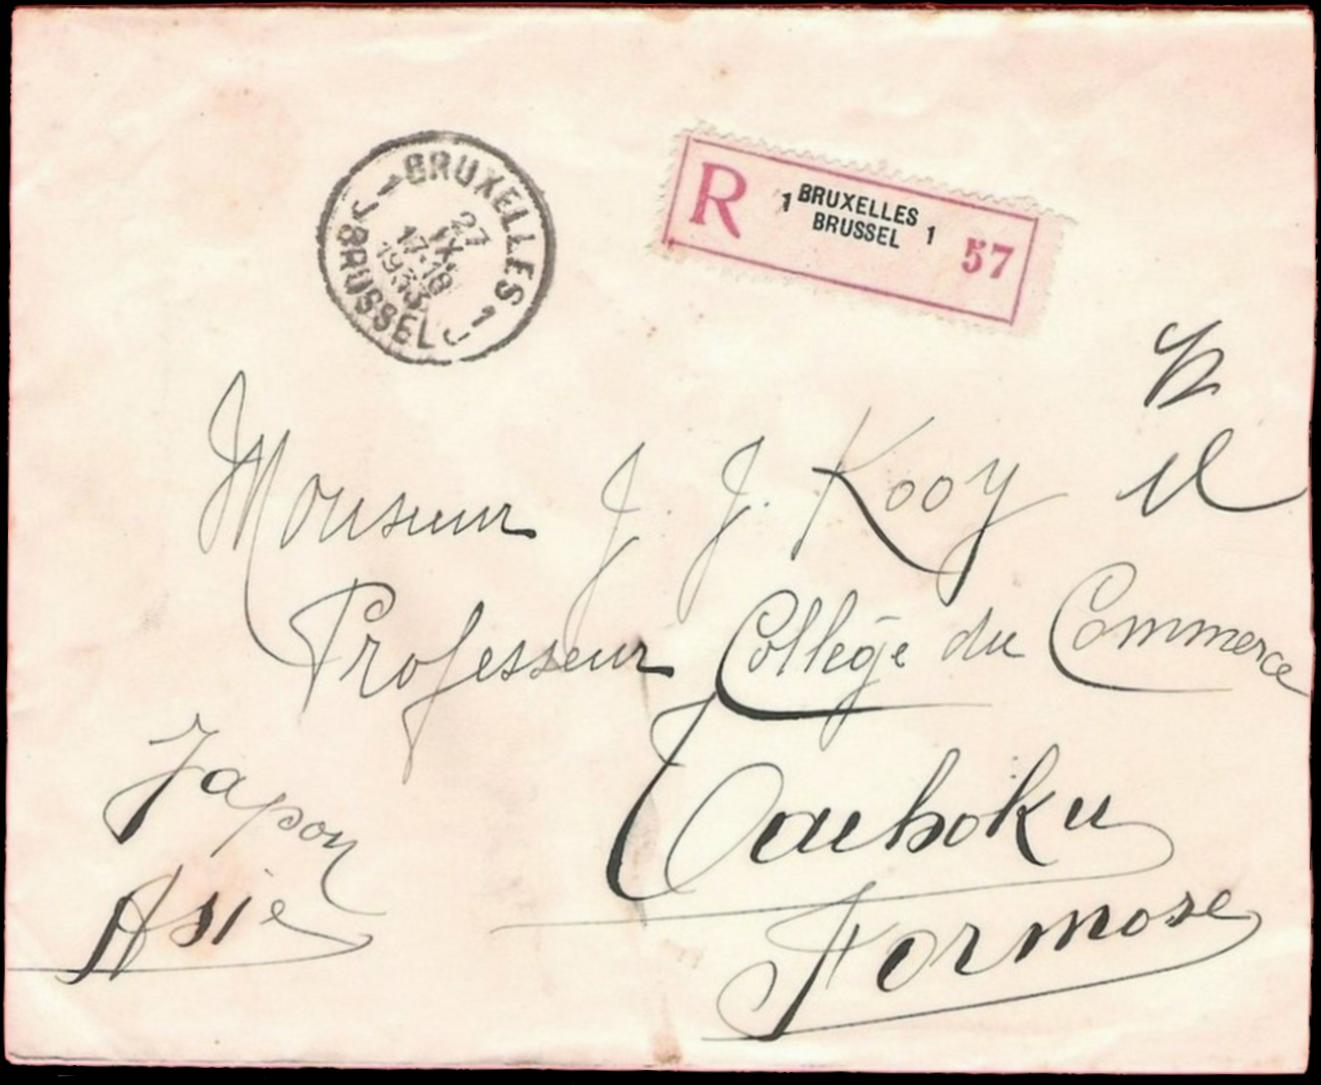 BRUXELLES 1
27
IX.
17-18
1933
BRUSSEL
R
1 BRUXELLES 1
BRUSSEL
57
Monsieur J. J. Kooy
Professeur Collège du Commerce
Taihoku
Formose
Japon
Asie